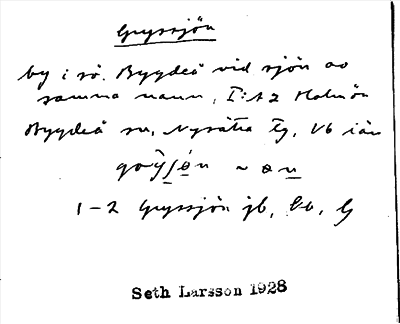 Gryssjön
by i sö. Bygdeå vid sjön av
samma namn, I:12 Holmön
Bygdeå sn, Nysätra tg, Vb län
1–2 Gryssjön jb, Eb, G
Seth Larsson 1928